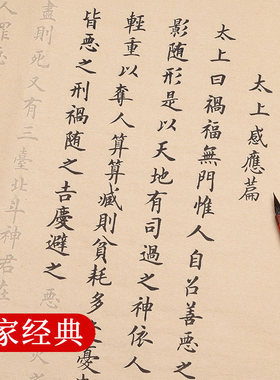 太上感應篇
太上曰禍福無門惟人自召善惡之
影随形是以天地有司過之神依人
輕重以奪人算算減則貧耗多逢憂
皆惡之刑禍随之吉慶避之
盡則死又有三臺北斗神君在
人罪惡
家经典